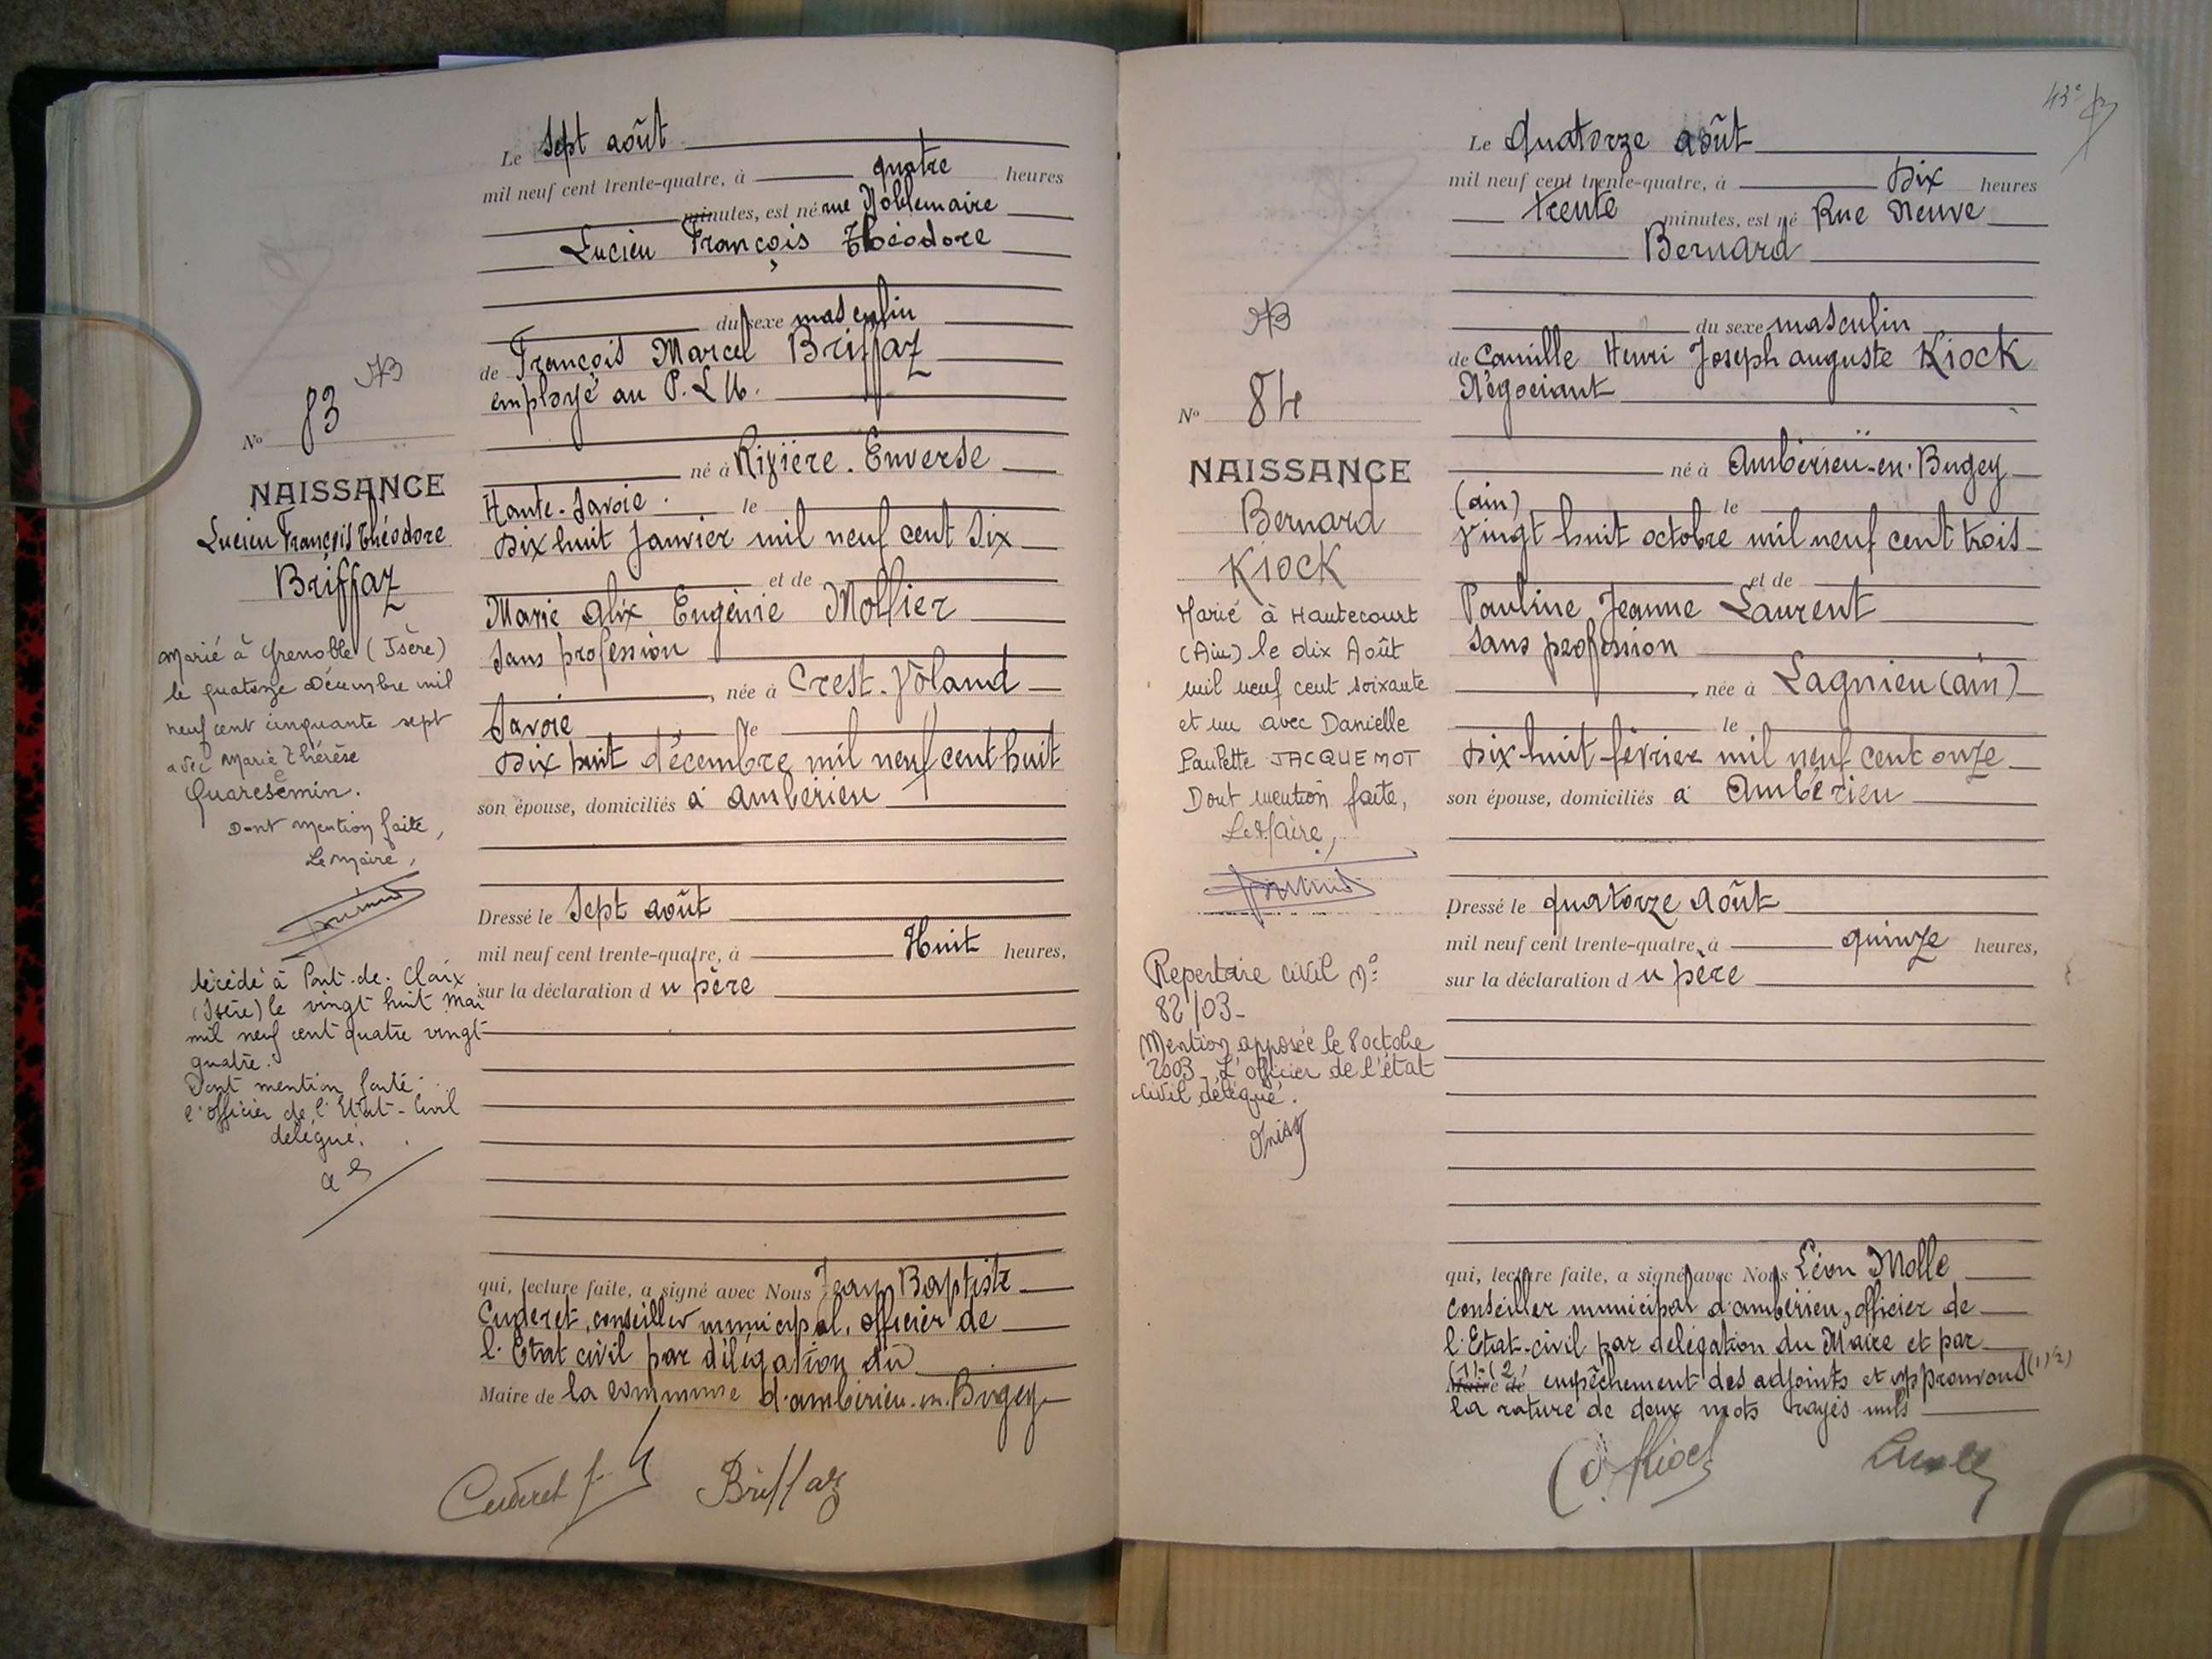 Le sept août
mil neuf cent trente-quatre, à quatre heures
minutes, est né rue Noblemaire
Lucien François Théodore
du sexe masculin
de François Marcel Briffaz
employé au P.L.M.
né à Rivière-Enverse
Haute-Savoie. le
dix huit janvier mil neuf cent six
et de
Marie Alix Eugénie Mollier
sans profession
, née à Crest-Voland
Savoie le
dix huit décembre mil neuf cent huit
son épouse, domiciliés à Ambérieu
Dressé le sept août
mil neuf cent trente-quatre, à Huit heures,
sur la déclaration du père
qui, lecture faite, a signé avec Nous Jean Baptiste
Cuderet, conseiller municipal, officier de
l'Etat civil par délégation du
Maire de la commune d'Ambérieu-en-Bugey
Cuderet J. B Briffaz
AB
No 83
NAISSANCE
Lucien François Théodore
Briffaz
Marié à Grenoble (Isère)
le quatorze Décembre mil
neuf cent cinquante sept
avec Marie Thérèse
Quaresemin.
Dont mention faite,
Le Maire,
décédé à Pont-de-Claix
(Isère) le vingt huit Mai
mil neuf cent quatre vingt
quatre.
Dont mention faite.
l'officier de l'Etat-Civil
délégué.
43e
Le quatorze août
mil neuf cent trente-quatre, à Dix heures
trente minutes, est né Rue Neuve
Bernard
du sexe masculin
de Camille Henri Joseph Auguste KIOCK
Négociant
né à Ambérieu-en-Bugey
(Ain) le
vingt huit octobre mil neuf cent trois
et de
Pauline Jeanne Laurent
sans profession
, née à Lagnieu (Ain)
le
dix huit février mil neuf cent onze
son épouse, domiciliés à Ambérieu
Dressé le quatorze Août
mil neuf cent trente-quatre, à quinze heures,
sur la déclaration du père
qui, lecture faite, a signé avec Nous Léon Molle
conseiller municipal d'Ambérieu, officier de
l'Etat-civil par délégation du Maire et par
(1) (2)
Maire de empêchement des adjoints et approuvons (1) (2)
la rature de deux mots rayés nuls
C. Kiock
AB
No 84
NAISSANCE
Bernard
KIOCK
Marié à Hautecourt
(Ain) le dix Août
mil neuf cent soixante
et un avec Danielle
Paulette JACQUEMOT
Dont mention faite,
Le Maire,
Repertoire civil No
82/03-
Mention apposée le 8 octobre
2003 L'officier de l'état
civil délégué.